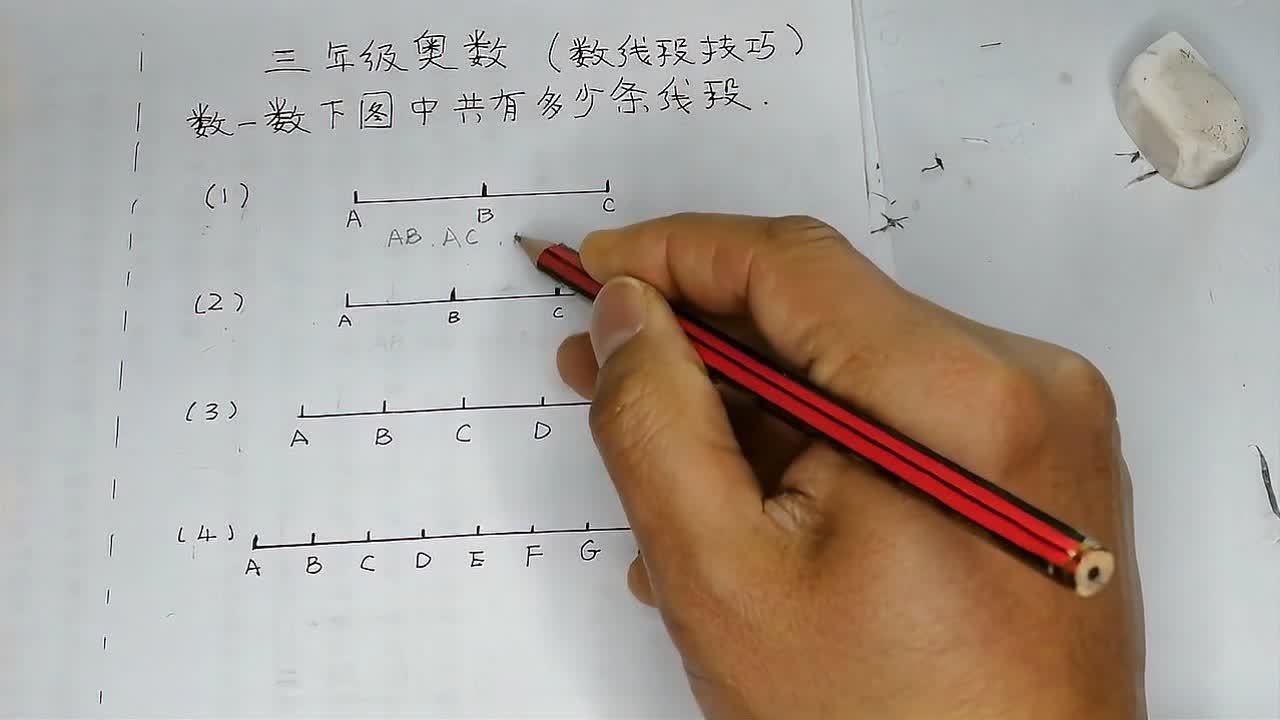 三年级奥数（数线段技巧）
数一数下图中共有多少条线段.
(1)
A B C
AB.AC.
(2)
A B C
(3)
A B C D
(4)
A B C D E F G